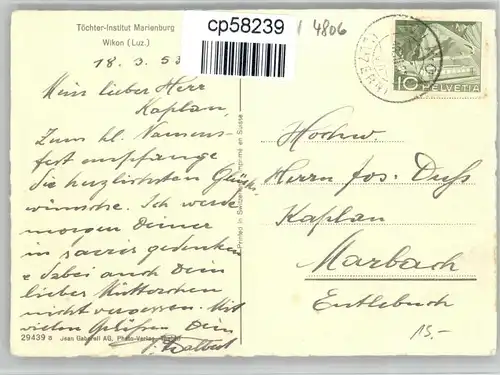 Töchter-Institut Marienburg
Wikon (Luz.)
cp58239
4806
18. 3. 53
Mein lieber Herr
Kaplan,
Zum hl. Namens-
fest empfange
die herzlichsten Glücks-
wünsche. Ich werde
morgen Deiner
in sacris gedenken
& dabei auch Dein
lieber Mütterchen
nicht vergessen. Mit
vielen Grüßen Dein
29439 a Jean Gaberell AG, Photo-Verlag, Thalwil
Printed in Switzerland Imprimé en Suisse
10 HELVETIA
Hochw.
Herrn Jos. Duss
Kaplan
Marbach
Entlebuch
15.-